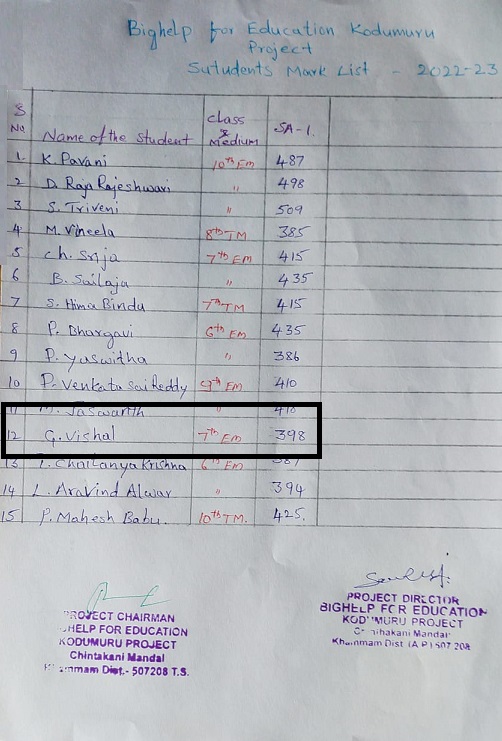 Bighelp for Education Kodumuru
Project
Sutudents Mark List - 2022-23
S No Name of the student class & Medium SA-1.
1. K. Pavani 10th EM 487
2 D. Raja Rajeshwari " 498
3 S. Triveni " 509
4 M. Vineela 8th TM 385
5 Ch. Srija 7th EM 415
6 B. Sailaja " 435
7 S. Hima Bindu 7th TM 415
8 P. Bhargavi 6th EM 435
9 P. Yaswitha " 386
10 P. Venkata Sai Reddy 9th EM 410
11 M. Jaswanth " 410
12 G. Vishal 7th EM 398
13 Chaitanya Krishna 6th EM 387
14 L. Aravind Alwar " 394
15 P. Mahesh Babu. 10th TM. 425.
PROJECT CHAIRMAN
GHELP FOR EDUCATION
KODUMURU PROJECT
Chintakani Mandal
Khammam Dist.- 507208 T.S.
PROJECT DIRECTOR
BIGHELP FOR EDUCATION
KODUMURU PROJECT
Chintakani Mandal
Khammam Dist (A.P) 507 208